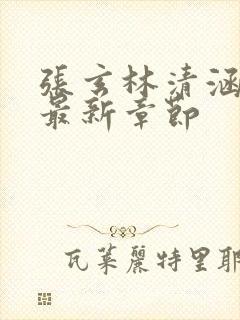 張玄林清涵
最新章節
瓦萊麗特里耶